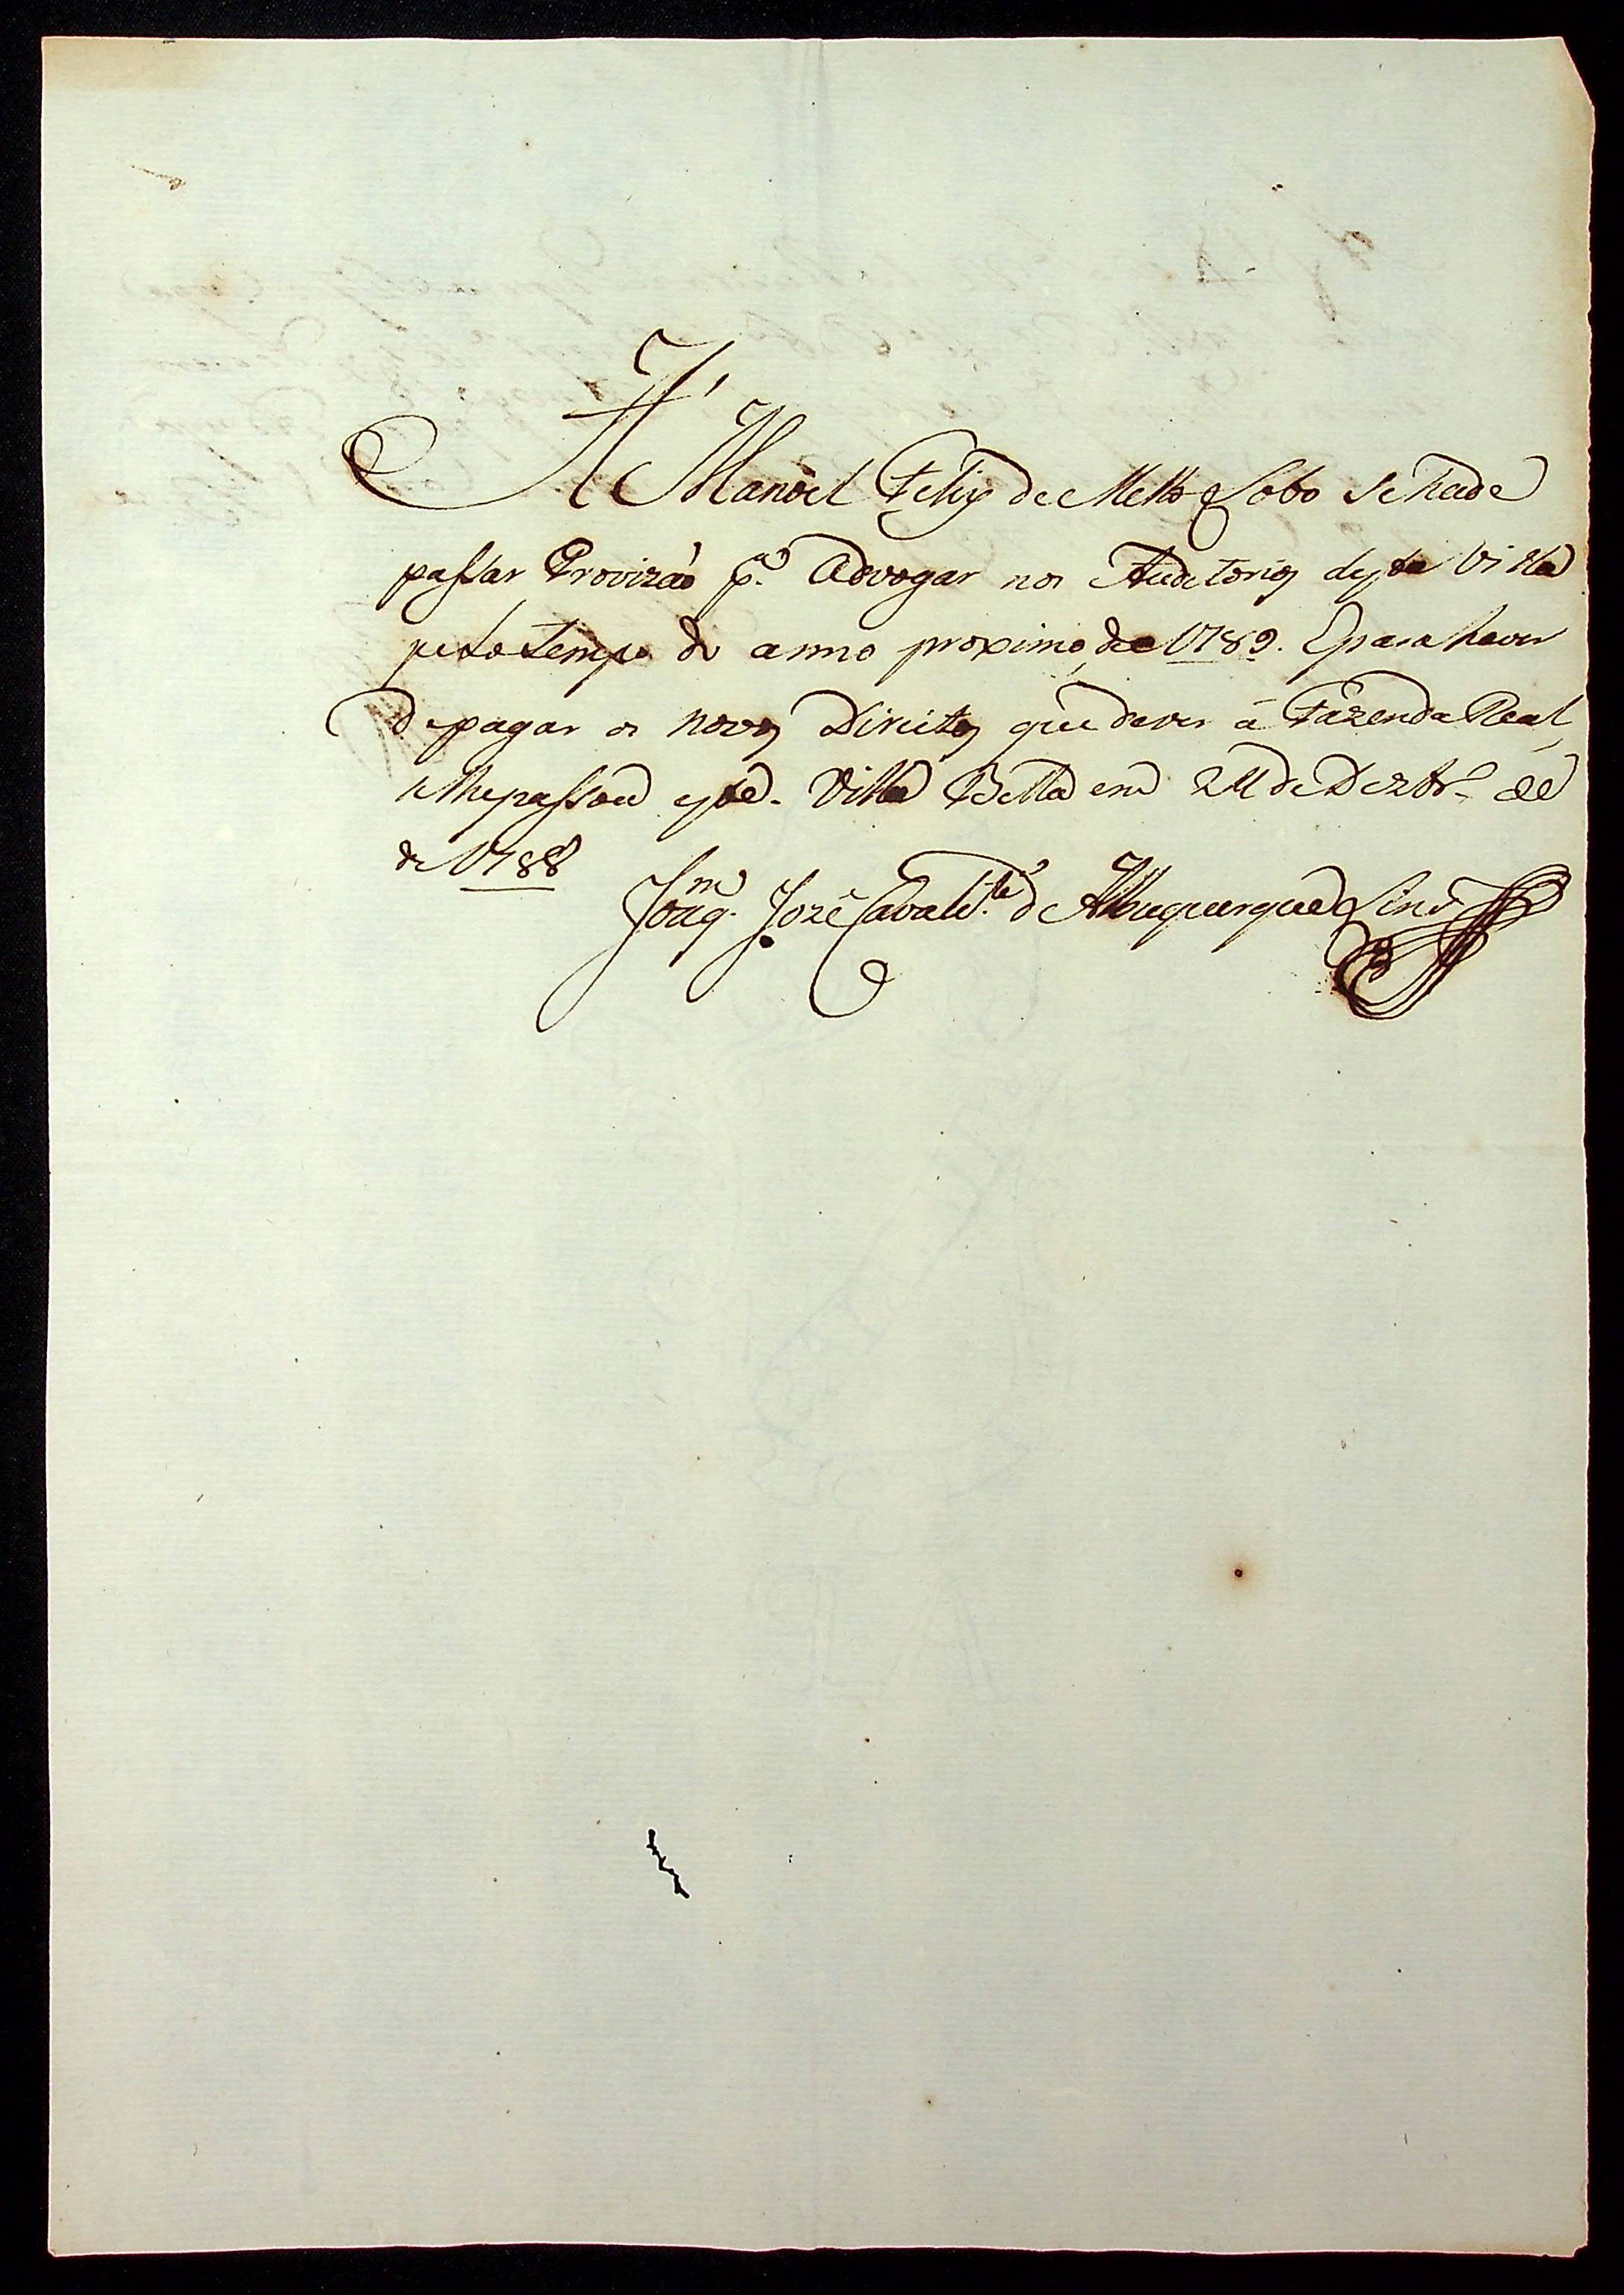 A Manoel Felix de Mello Lobo se hade
passar Provizaõ p.ª Advogar nos Auditorios desta Villa
pelo tempo do anno proximo de 1789. E para haver
de pagar os novos Direitos que dever á Fazenda Real,
se lhe passou este. Villa Bella em 24 de Dezbr.º de
de 1788
Joaq.m Jozé Cavalc.te d'Albuquerque Lins